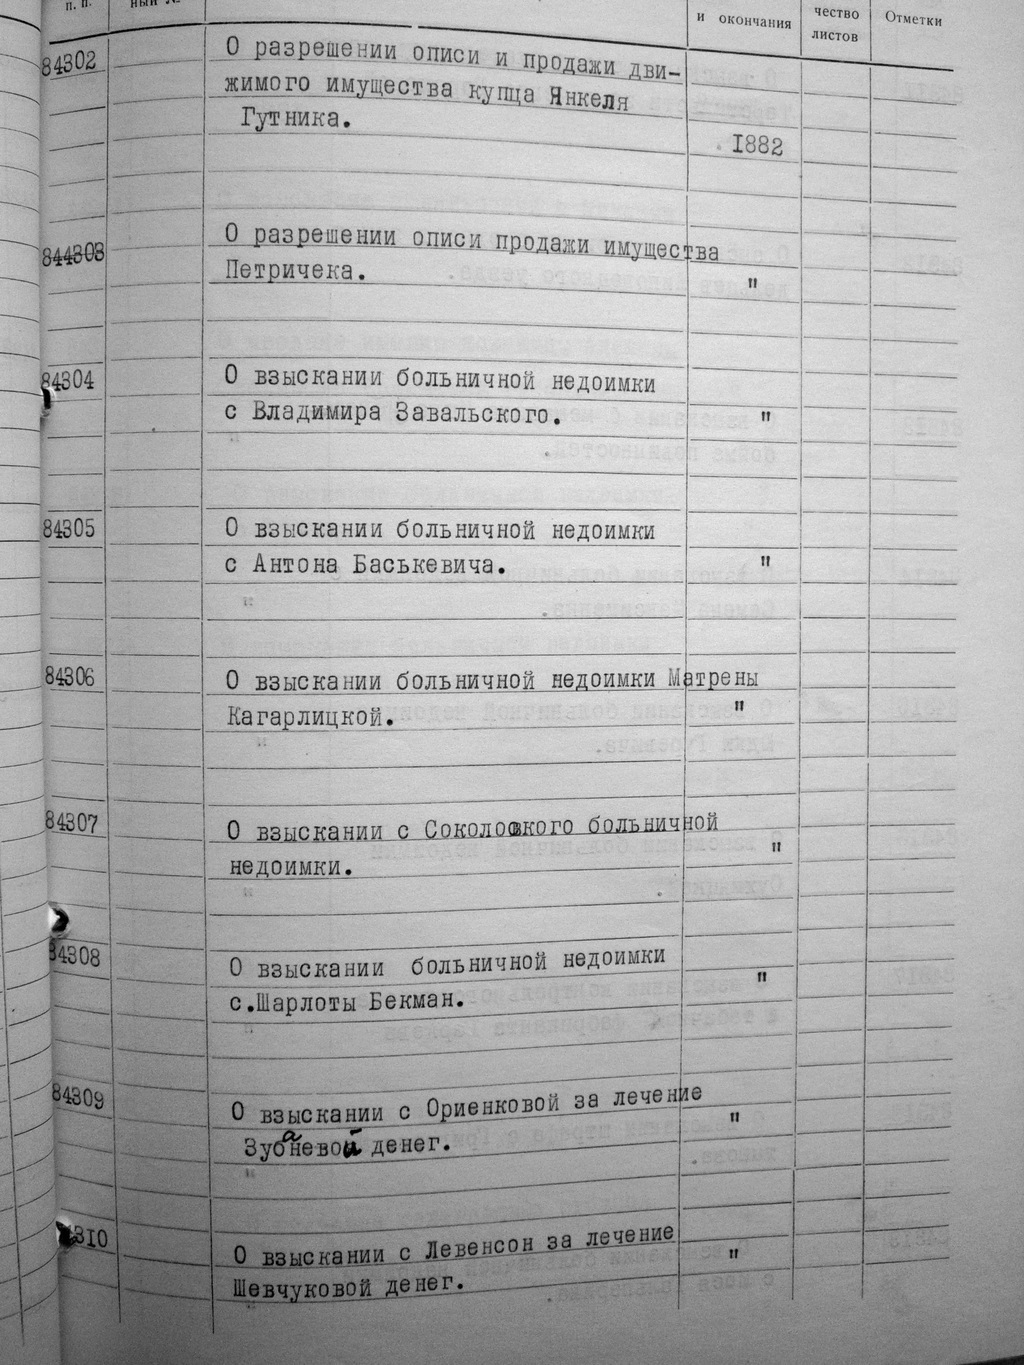 п. п.
ный №
и окончания
чество
листов
Отметки
84302
О разрешении описи и продажи дви-
жимого имущества купца Янкеля
Гутника.
1882
844303
О разрешении описи продажи имущества
Петричека.
"
84304
О взыскании больничной недоимки
с Владимира Завальского.
"
84305
О взыскании больничной недоимки
с Антона Баськевича.
"
84306
О взыскании больничной недоимки Матрены
Кагарлицкой.
"
84307
О взыскании с Соколовкого больничной
недоимки.
"
84308
О взыскании больничной недоимки
с.Шарлоты Бекман.
"
84309
О взыскании с Ориенковой за лечение
Зубаневой денег.
"
84310
О взыскании с Левенсон за лечение
Шевчуковой денег.
"